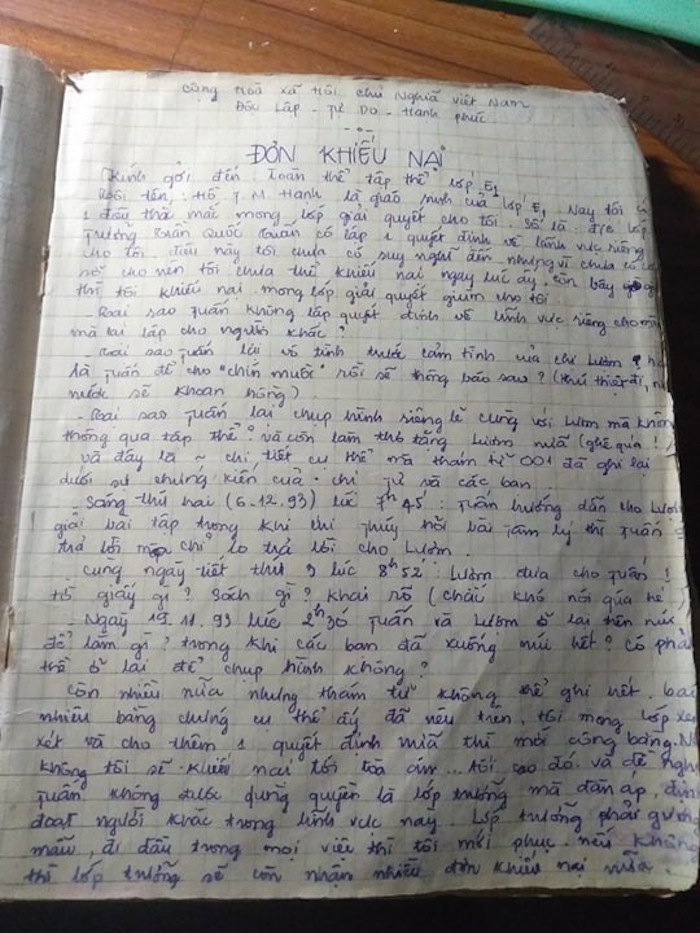 Cộng Hoà Xã Hội Chủ Nghĩa Việt Nam
Độc Lập - Tự Do - Hạnh phúc
ĐƠN KHIẾU NẠI
Kính gởi đến: Toàn thể tập thể lớp E1
Tôi tên: Hồ T.M. Hạnh là giáo sinh của lớp E1. Nay tôi có
1 điều thắc mắc mong lớp giải quyết cho tôi. Số là: đ/c lớp
trưởng Trần Quốc Tuấn có lập 1 quyết định về lãnh vực riêng
cho tôi. điều này tôi chưa có suy nghĩ đến nhưng vì chưa có
nên cho nên tôi chưa thể khiếu nại ngay lúc ấy. còn bây giờ
thì tôi khiếu nại. mong lớp giải quyết giùm cho tôi
- Tại sao Tuấn không lập quyết định về lĩnh vực riêng cho mình
mà lại lập cho người khác?
- Tại sao Tuấn lại vô tình trước cảm tình của chị Lượm?
là Tuấn để cho "chín muồi" rồi sẽ thông báo sau? (thú thiệt đi,
nước sẽ khoan hồng)
- Tại sao Tuấn lại chụp hình riêng lẽ cùng với Lượm mà không
thông qua tập thể? và còn làm thơ tặng Lượm nữa (ghê quá!)
và đây là ~ chi tiết cụ thể mà thám tử 001 đã ghi lại
dưới sự chứng kiến của chị Tư và các bạn
- Sáng thứ hai (6.12.93) lúc 7h45': Tuấn hướng dẫn cho Lượm
giải bài tập trong khi chị Thúy hỏi bài tâm lý thì Tuấn
trả lời mà chỉ lo trả lời cho Lượm.
Cùng ngày tiết thứ 3 lúc 8h52': Lượm đưa cho Tuấn 1
tờ giấy gì? sách gì? khai rõ (chắc khó nói quá hé)
- Ngày 19.11.93 lúc 2h30 Tuấn và Lượm ở lại trên núi
để làm gì? trong khi các bạn đã xuống núi hết? có phải
thế ở lại để chụp hình không?
Còn nhiều nữa nhưng thám tử không thể ghi hết.
nhiều bằng chứng cụ thể ấy đã nêu trên, tôi mong lớp xem
xét và cho thêm 1 quyết định nữa thì mới công bằng.
không tôi sẽ khiếu nại tới toà án... tối cao đó. và đề nghị
Tuấn không được dùng quyền là lớp trưởng mà đàn áp, định
đoạt người khác trong lĩnh vực này. Lớp trưởng phải gương
mẫu, đi đầu trong mọi việc thì tôi mới phục. nếu không
thì lớp trưởng sẽ còn nhận nhiều đơn khiếu nại nữa.